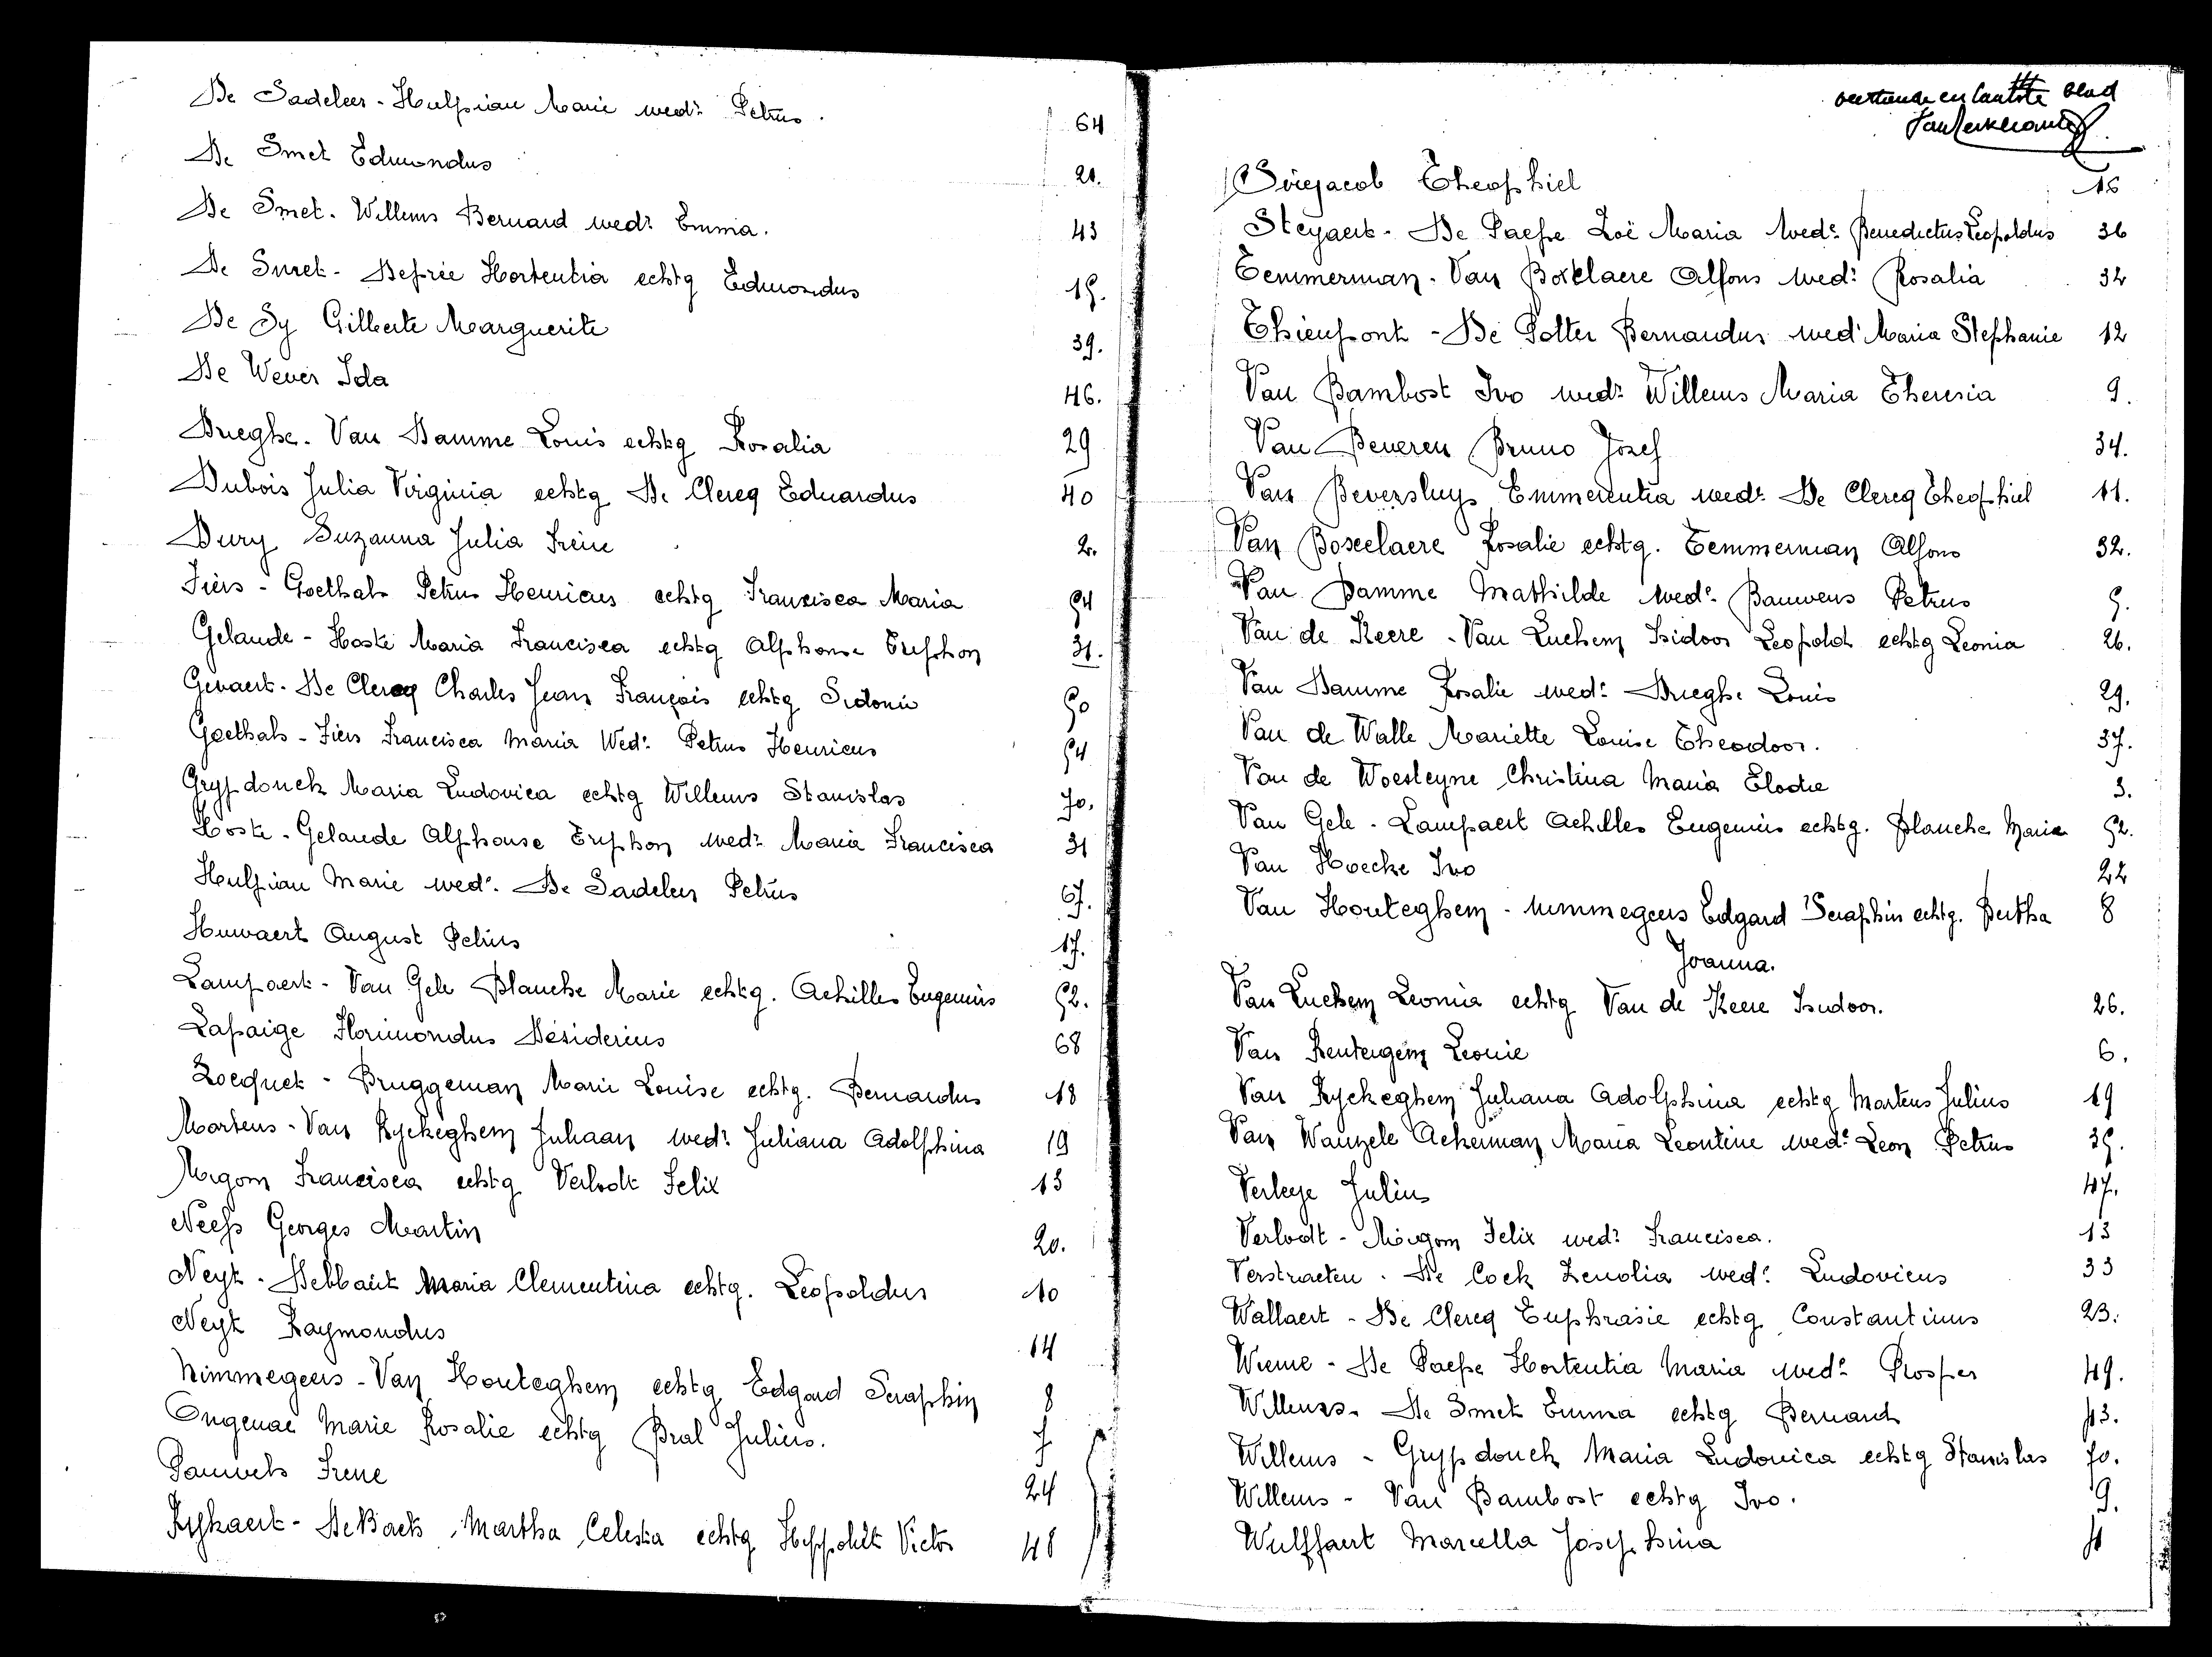 De Sadeleer - Hulpiau Marie wedr Petrus. 64
De Smet Edmondus 21.
De Smet. Willems Bernard wedr Emma. 43
De Smet - Defrée Hortentia echtg Edmondus 15.
De Sy Gilberte Marguerite 39.
De Wever Ida 46.
Drieghe. Van Damme Louis echtg Rosalia 29
Dubois Julia Virginia echtg De Clercq Eduardus 40
Dury Suzanna Julia Irène 2.
Fiers - Goethals Petrus Henricus echtg Francisca Maria 54
Gelaude - Hoste Maria Francisca echtg Alphonse Tryphon 31.
Gevaert - De Clercq Charles Jean François echtg Sidonie 50
Goethals - Fiers Francisca Maria Wedr Petrus Henricus 54
Grypdonck Maria Ludovica echtg Willems Stanislas 70.
Hoste - Gelaude Alphonse Tryphon wedr Maria Francisca 31
Hulpiau Marie wedr. De Sadeleer Petrus 67.
Huwaert August Petrus 17.
Lampaert - Van Gele Blanche Marie echtg. Achilles Eugenius 52.
Lapaige Florimondus Désiderius 68
Locquet - Bruggeman Marie Louise echtg. Bernardus 18
Martens - Van Ryckeghem Juliaan wedr Juliana Adolphina 19
Migom Francisca echtg Verlodt Felix 13
Neefs Georges Martin 20.
Neyt - Debbaut Maria Clementina echtg. Leopoldus 10
Neyt Raymondus 14
Nimmegeers - Van Houteghem echtg Edgard Seraphin 8
Ongenae Marie Rosalie echtg Bral Julien. 7
Pauwels Irene 24
Rykaert - De Baets Martha Celesta echtg Hyppoliet Victor 48
blad
Sirejacob Theophiel 16
Steyaert - De Paepe Zoë Maria Wedr Benedictus Leopoldus 36
Temmerman - Van Boxelaere Alfons wedr Rosalia 32
Thienpont - De Potter Bernardus wedr Maria Stephanie 12
Van Bambost Ivo wedr Willems Maria Theresia 9.
Van Beveren Bruno Jozef 34.
Van Beversluys Emmerentia wedr De Clercq Theophiel 11.
Van Boxelaere Rosalie echtg. Temmerman Alfons 32.
Van Damme Mathilde wedr Bauwens Petrus 5.
Van de Keere - Van Luchem Isidoor Leopold echtg Leonia 26.
Van Damme Rosalie wedr Drieghe Louis 29.
Van de Walle Mariette Louise Theodoor. 37.
Van de Woesteyne Christina Maria Elodie 3.
Van Gele - Lampaert Achilles Eugenius echtg. Blanche Marie 52.
Van Hoecke Ivo 22
Van Houteghem - Nimmegeers Edgard Seraphin echtg. Bertha 8
Joanna.
Van Luchem Leonia echtg Van de Keere Isidoor. 26.
Van Renterghem Leonie 6.
Van Ryckeghem Juliana Adolphina echtg Martens Julius 19
Van Wanzele Ackerman Maria Leontine wedr Leon Petrus 35.
Verleye Julius 47.
Verlodt - Migom Felix wedr Francisca. 13
Verstraeten. De Cock Zenolia wedr Ludovicus 33
Wallaert - De Clercq Euphrasie echtg Constantinus 23.
Wieme - De Paepe Hortentia Maria wedr Prosper 49.
Willems. De Smet Emma echtg Bernard 43.
Willems - Grypdonck Maria Ludovica echtg Stanislas 70.
Willems - Van Bambost echtg Ivo. 9.
Wulffaert Marcella Josephina 4